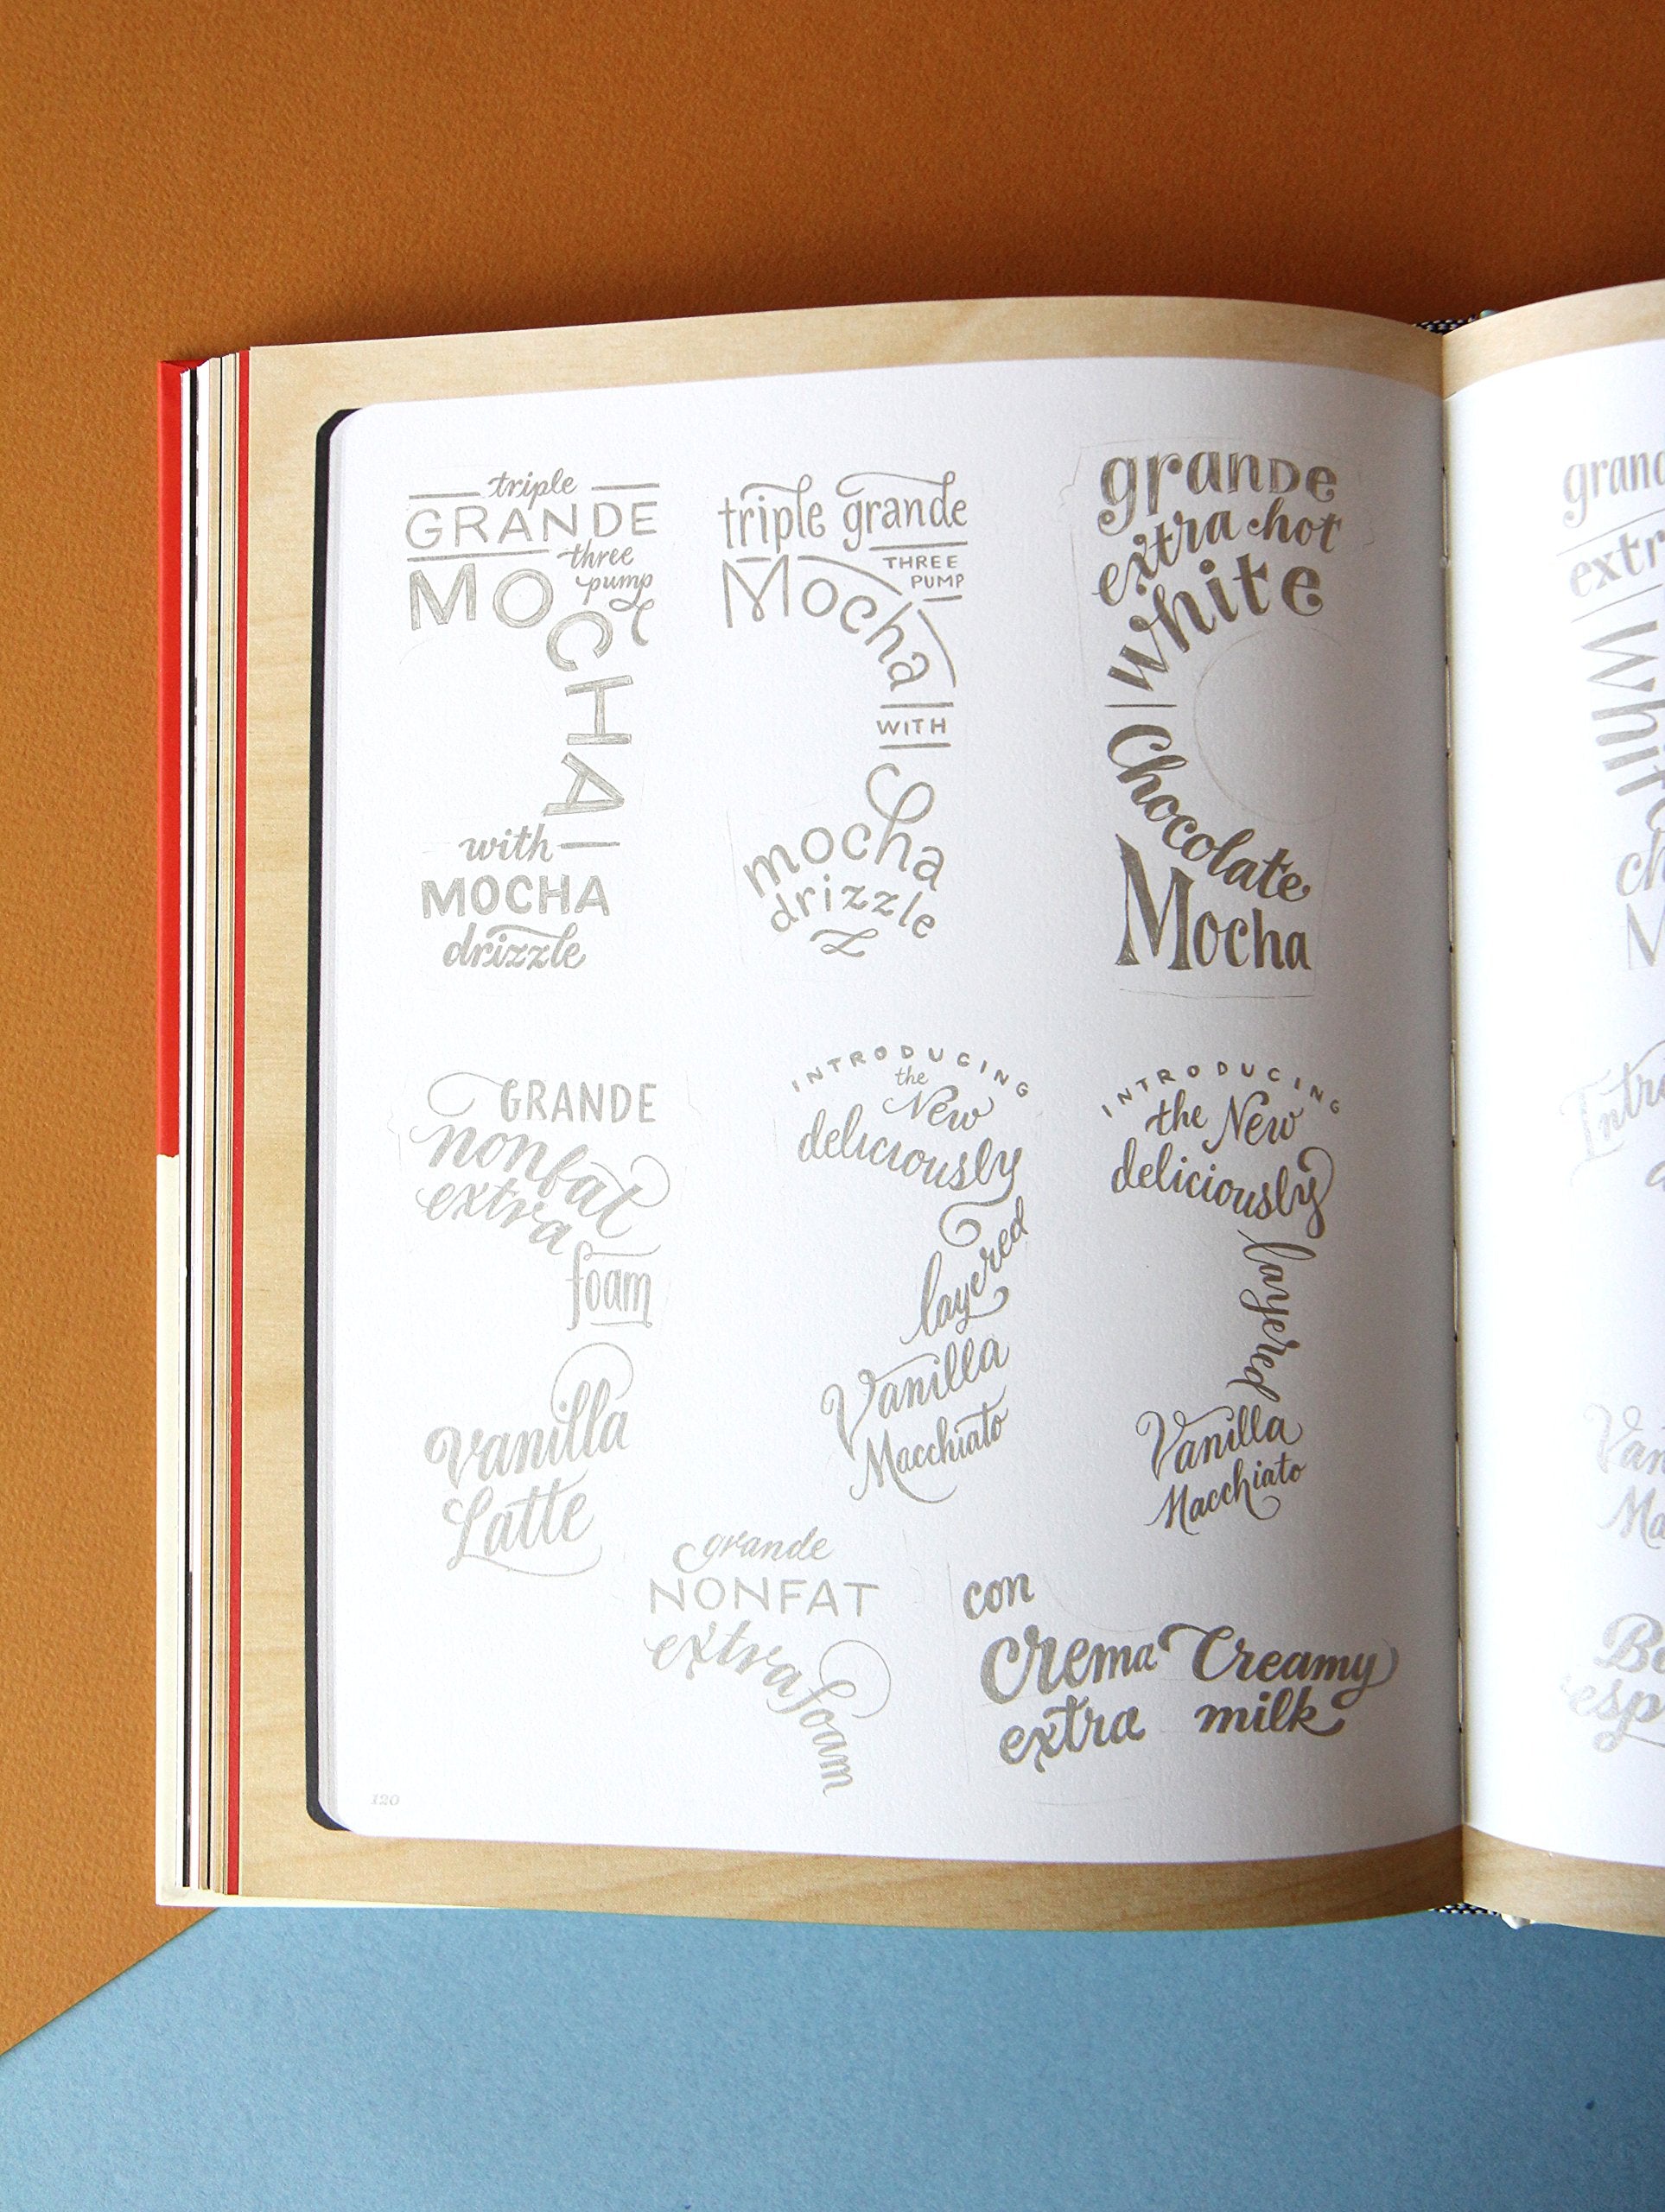 triple
GRANDE
three
pump
MOCHA
with
MOCHA
drizzle
triple grande
THREE
PUMP
Mocha
WITH
mocha
drizzle
grande
extra hot
white
Chocolate
Mocha
GRANDE
nonfat
extra
foam
Vanilla
Latte
INTRODUCING
the
New
deliciously
layered
Vanilla
Macchiato
INTRODUCING
the New
deliciously
layered
Vanilla
Macchiato
grande
NONFAT
extra foam
con
Crema
extra
Creamy
milk
120